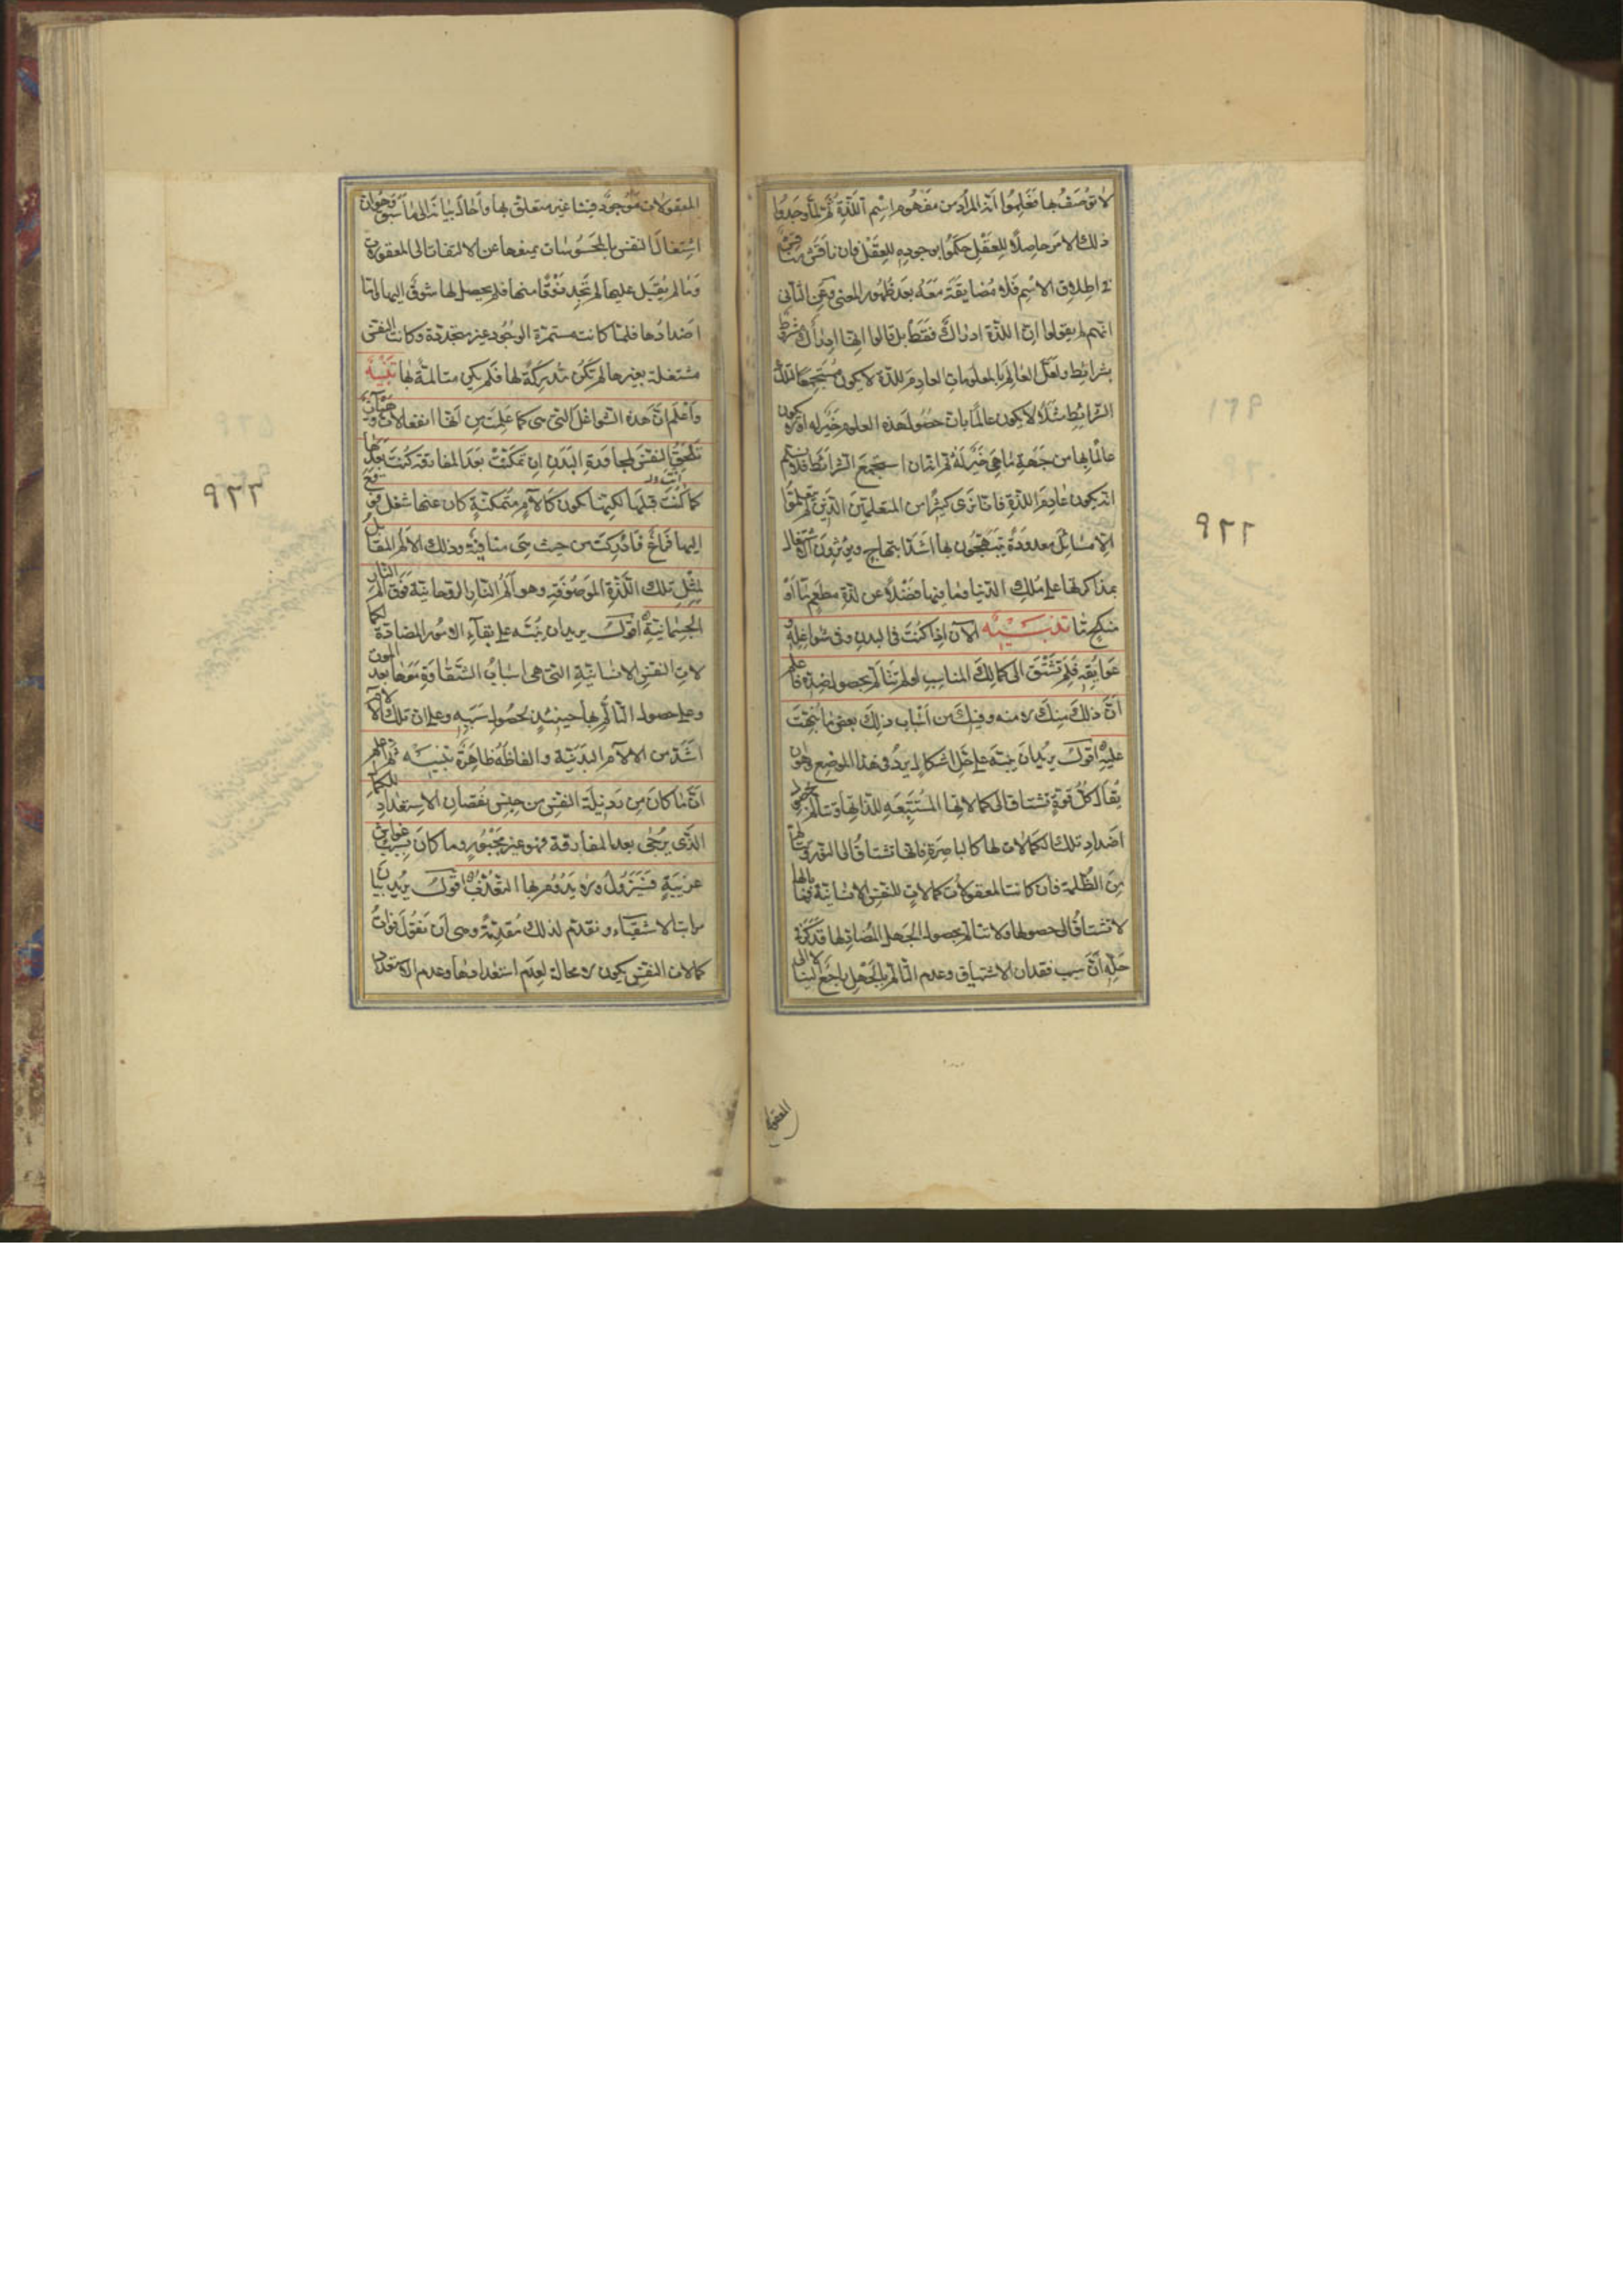 لا توصف بها فعلموا انّ المراد من مفهوم اسم اللّذّة ثمّ لمّا وجدوا
ذلك الامر حاصلاً للعقل حكموا بوجوده للعقل فان ناقش مناقش
في اطلاق الاسم فلا مضايقة معه بعد ظهور المعنى وعن الثاني
انهم لم يقولوا انّ اللذّة ادراك فقط بل قالوا انها ادراك مشروط
بشرائط ولعلّ العالم بالمعلومات العادم للذة لا يكون مستجمعا لتلك
الشرائط مثلاً لا يكون عالماً بانّ حصول هذه العلوم خير له او لا يكون
عالماً بها من جهة ما هى خير له ثم انه ان استجمع الشرائط فلا نسلّم
انه يكون عادم اللذة فانا نرى كثيرا من المتعلمين الذين لم يتعلموا
الا مسائل معدودة يبتهجون بها اشدّ ابتهاج ويؤثرون الاشتغال
بمذاكرتها على ملك الدنيا وما فيها فضلاً عن لذة مطعم ما او
منكح ما تنبيه الآن اذا كنت فى البدن وفى شواغله و
عوايقه فلم تشتق الى كمالك المناسب او لم تتألّم بحصول ضدّه فاعلم
انّ ذلك منك لا منه وفيك من اسباب ذلك بعض ما نبّهت
عليه اقول يريد ان ينبّه على حلّ اشكال يرد فى هذا الموضع وهو ان
يقال كلّ قوة تشتاق الى كمالاتها المستتبعه للذاتها وتتألّم بحصول
اضداد تلك الكمالات لها كالباصرة فانها تشتاق الى النور وتتألم
من الظلمة فان كانت المعقولات كمالات للنفس الانسانية فما بالها
لا تشتاق الى حصولها ولا تتالم بحصول الجهل المضاد لها فذكر فى
حلّه انّ سبب فقدان الاشتياق وعدم التألّم بالجهل راجع الينا لا الى
المعقو
٩٢٢
المعقولات موجود فينا غير متعلق بها واحال بيانه الى ما سبق وهو ان
اشتغال النفس بالمحسوسات يمنعها عن الالتفات الى المعقولات
وما لم يقبل عليها لم تجد ذوقا منها فلم يحصل لها شوق اليها وامّا
اضدادها فلمّا كانت مستمرة الوجود غير متجددة وكانت النفس
مشتغلة بغيرها لم تكن مدركة لها فلم يكن متالمة بها تنبيه
واعلم انّ هذه الشواغل التى هى كما علمت من انها انفعالات وهيآت
تلحق النفس لمجاورة البدن ان تمكنت بعد المفارقة كنت بعدها
كما كنت قبلها لكنها تكون كآلام متمكنة كان عنها شغل فوقع
اليها فراغ فادركت من حيث هى منافية وذلك الالم المقابل
لمثل تلك اللّذّة الموصوفة وهو ألم النار الروحانية فوق ألم النار
الجسمانية اقول يريد ان ينبّه على بقاء الامور المضادة لكما
لات النفس الانسانية التى هى اسباب الشقاوة معها بعد الموت
وعلى حصول التألّم بها حينئذ لحصول سببه وعلى ان تلك الآلام
اشدّ من الآلام البدنية والفاظه ظاهرة تنبيه ثم اعلم
انّ ما كان من رذيلة النفس من جنس نقصان الاستعداد للكمال
الّذى يرجى بعد المفارقة فهو غير مجبور وما كان بسبب غواش
غريبة فيزول ولا يدوم بها التعذّب اقول يريد بيان
مراتب الاشقياء ونقدّم لذلك مقدّمة وهى ان نقول فوات
كمالات النفس يكون لا محالة لعدم استعدادها وعدم الاستعداد
٩٢٣